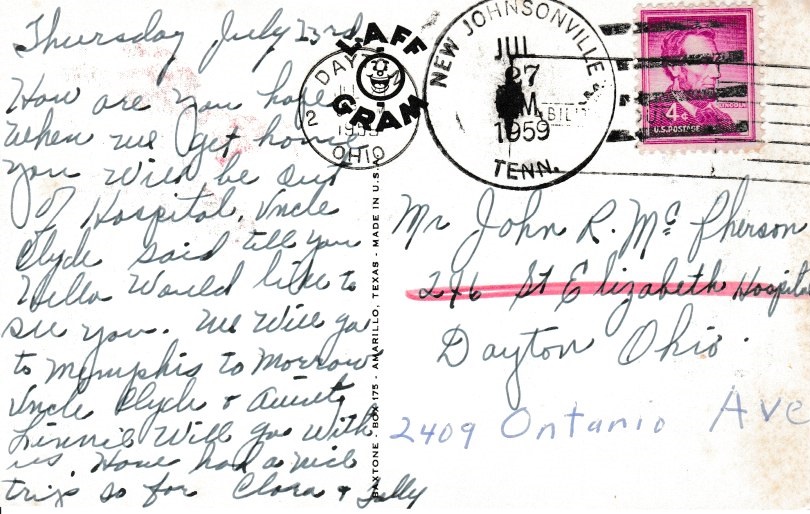 Thursday July 23rd
How are you hope
when we get home
you will be out
of Hospital. Uncle
Clyde said tell you
Hello Would like to
see you. We will go
to Mymphis to Morrow
Uncle Clyde & Aunty
Linnie Will go with
us. Have had a nice
trip so for Clora &
LAFF
GRAM
DAYTON
2
OHIO
BAXTONE - BOX 175 - AMARILLO, TEXAS - MADE IN U.S.
NEW JOHNSONVILLE
JUL
27
M
1959
TENN.
4¢
LINCOLN
U.S. POSTAGE
Mr John R. McPherson
246 St Elizabeth Hospital
Dayton Ohio.
2409 Ontario Ave